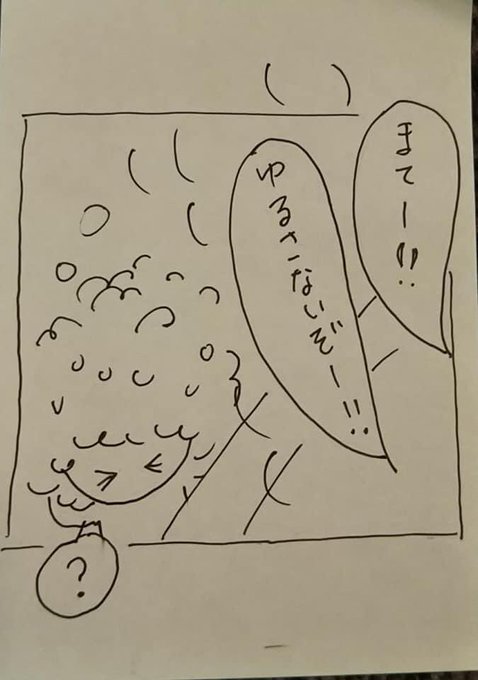 まてー!!
ゆるさないぞー!!
?